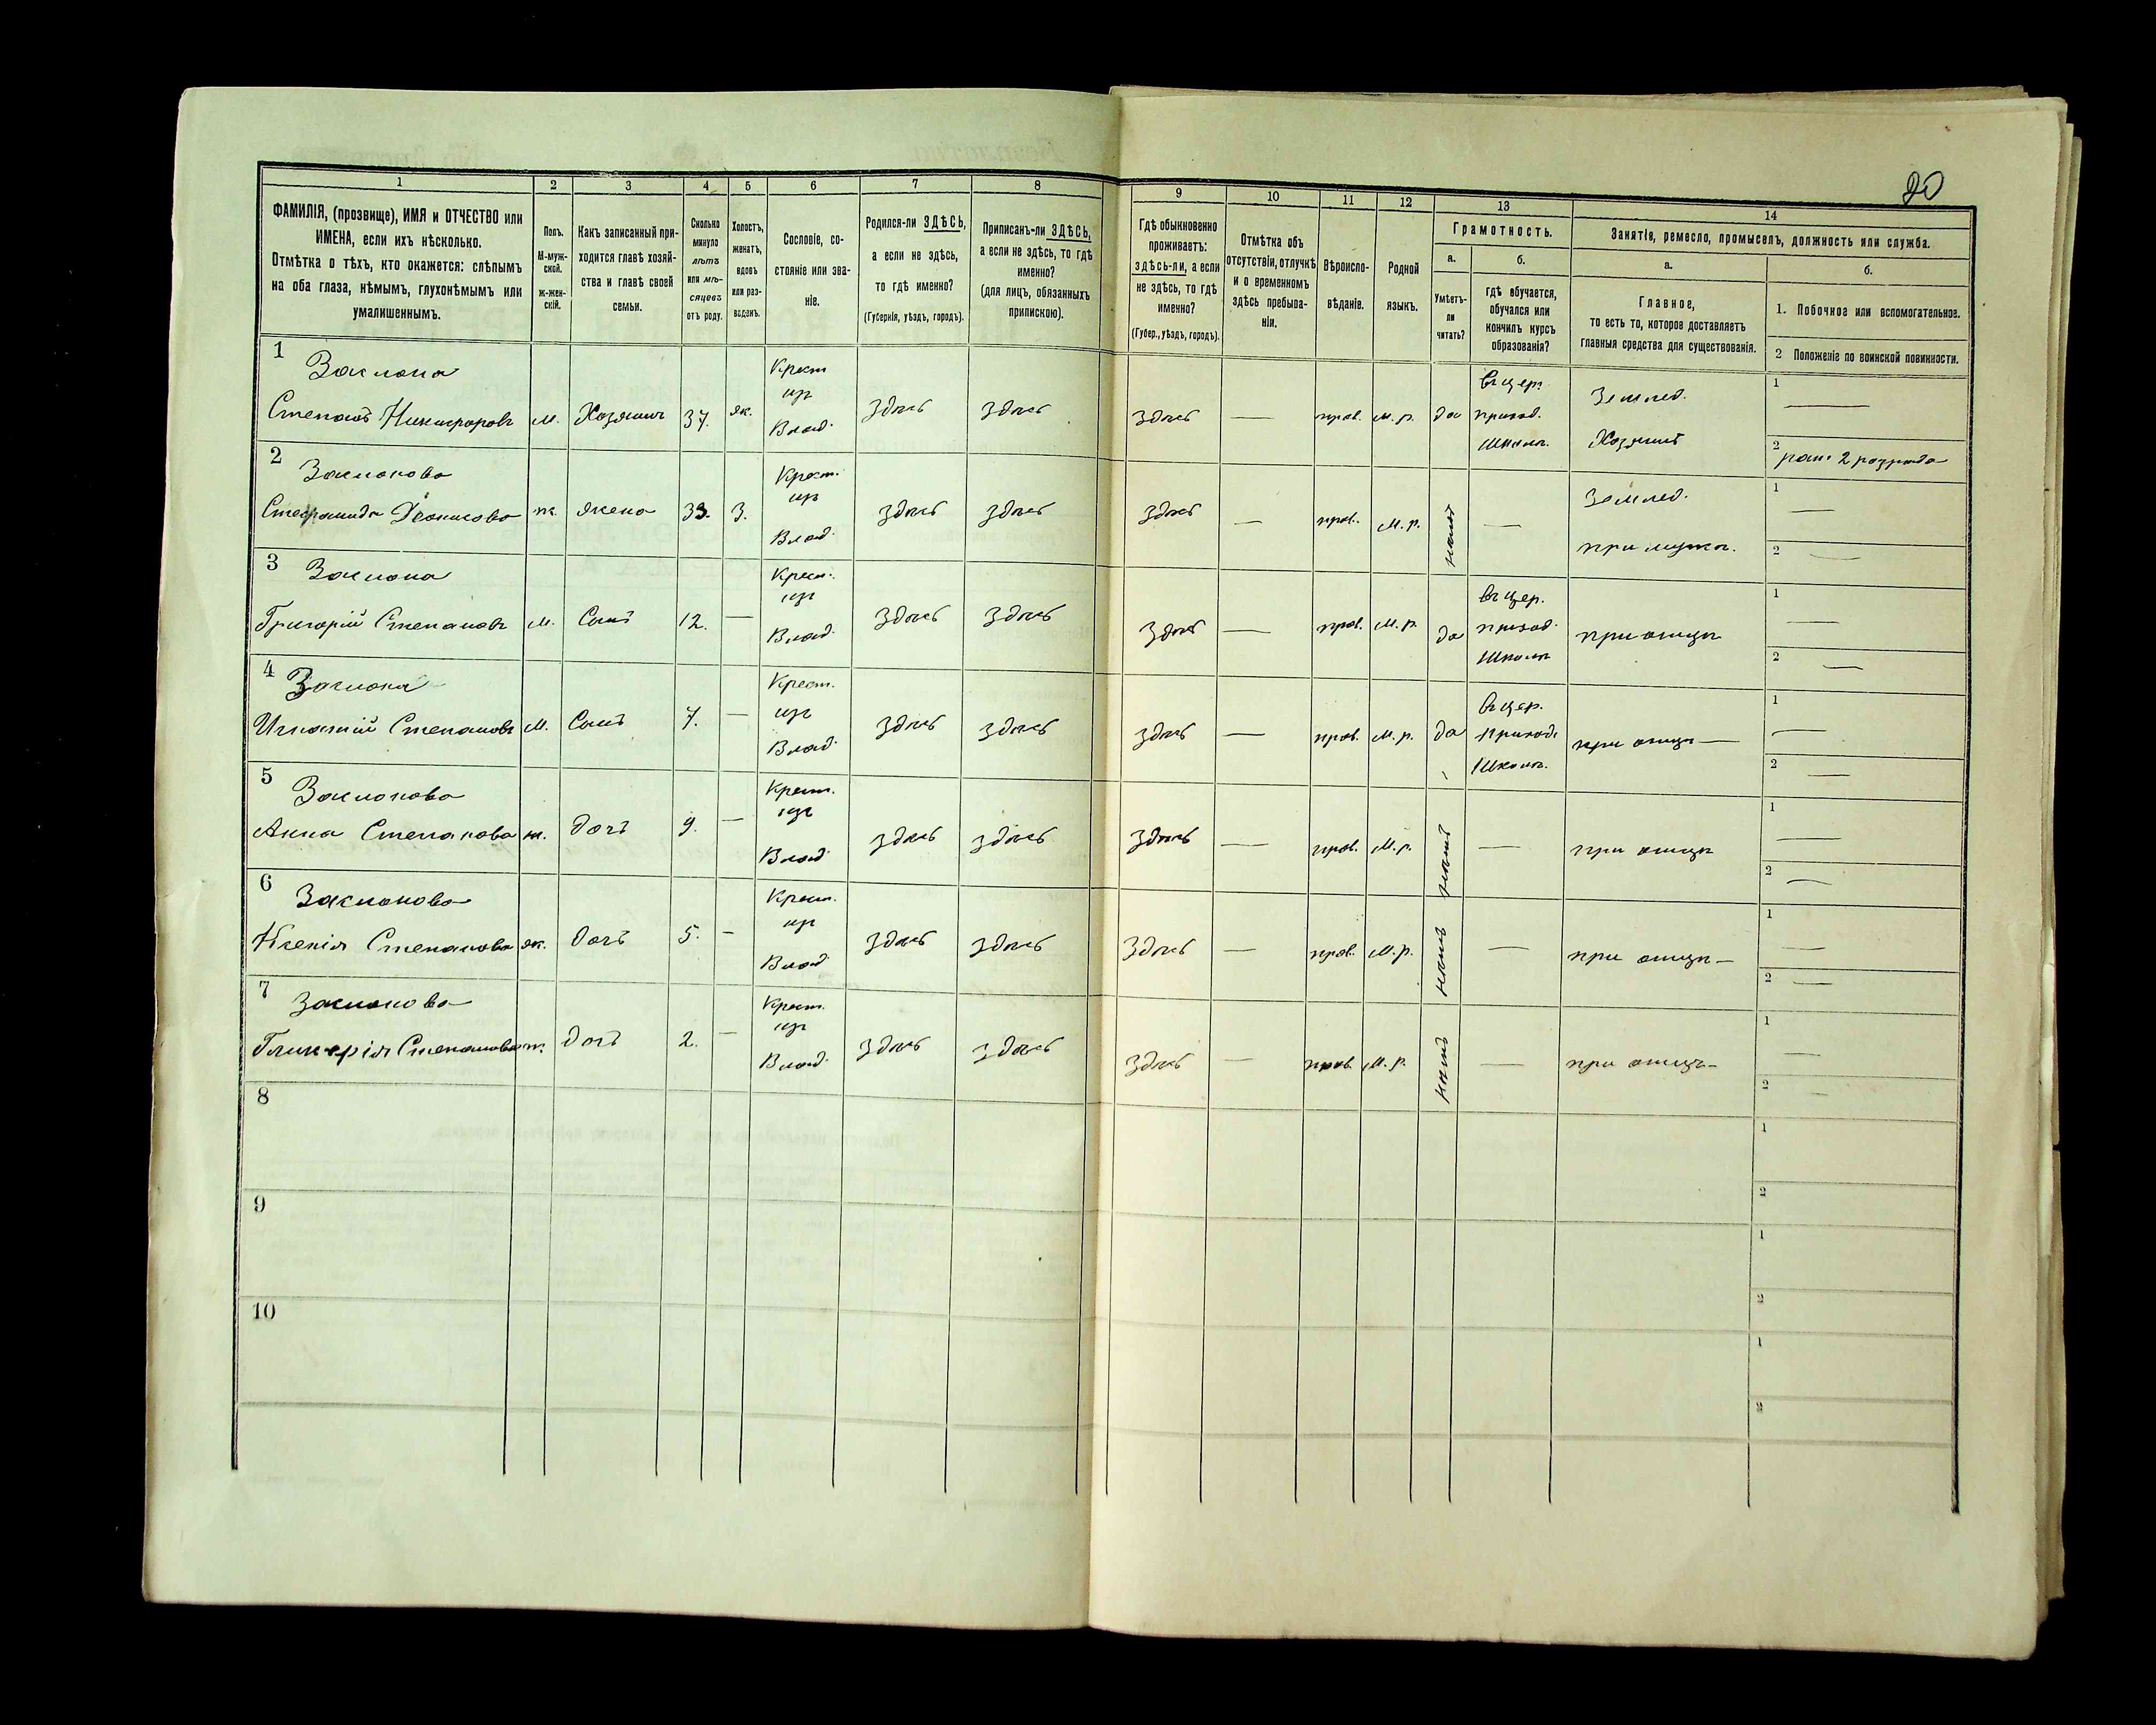 20
1 2 3 4 5 6 7 8 9 10 11 12 13 14
ФАМИЛІЯ, (прозвище), ИМЯ и ОТЧЕСТВО или
ИМЕНА, если ихъ нѣсколько.
Отмѣтка о тѣхъ, кто окажется: слѣпымъ
на оба глаза, нѣмымъ, глухонѣмымъ или
умалишеннымъ.
Полъ.
М-муж-
ской.
ж-жен-
скій.
Какъ записанный при-
ходится главѣ хозяй-
ства и главѣ своей
семьи.
Сколько
минуло
лѣтъ
или мѣ-
сяцевъ
отъ роду.
Холостъ,
женатъ,
вдовъ
или раз-
веденъ.
Сословіе, со-
стояніе или зва-
ніе.
Родился-ли ЗДѢСЬ,
а если не здѣсь,
то гдѣ именно?
(Губернія, уѣздъ, городъ).
Приписанъ-ли ЗДѢСЬ,
а если не здѣсь, то гдѣ
именно?
(для лицъ, обязанныхъ
припискою).
Гдѣ обыкновенно
проживаетъ:
здѣсь-ли, а если
не здѣсь, то гдѣ
именно?
(Губер., уѣздъ, городъ).
Отмѣтка объ
отсутствіи, отлучкѣ
и о временномъ
здѣсь пребыва-
ніи.
Вѣроиспо-
вѣданіе.
Родной
языкъ.
Грамотность.
а.
Умѣетъ-
ли
читать?
б.
гдѣ обучается,
обучался или
кончилъ курсъ
образованія?
Занятіе, ремесло, промыселъ, должность или служба.
а.
Главное,
то есть то, которое доставляетъ
главныя средства для существованія.
б.
1. Побочное или вспомогательное.
2 Положеніе по воинской повинности.
1
Заслона
Степанъ Никифоровъ
м.
Хозяинъ
37.
ж.
Крест
изъ
Влад.
здѣсь
здѣсь
здѣсь
—
прав.
м.р.
да
въ цер.
приход.
школѣ.
Землед.
Хозяинъ
1
—
2
рат. 2 разряда
2
Заслонова
Степанида Денисова
ж.
жена
33.
З.
Крест.
изъ
Влад.
здѣсь
здѣсь
здѣсь
—
прав.
м.р.
нѣтъ
—
Землед.
при мужѣ.
1
—
2
—
3
Заслона
Григорій Степановъ
м.
Сынъ
12.
—
Крест.
изъ
Влад.
здѣсь
здѣсь
здѣсь
—
прав.
м.р.
да
въ цер.
приход.
школѣ
при отцѣ
1
—
2
—
4
Заслона
Игнатій Степановъ
м.
Сынъ
7.
—
Крест.
изъ
Влад.
здѣсь
здѣсь
здѣсь
—
прав.
м.р.
да
въ цер.
приход.
школѣ.
при отцѣ —
1
—
2
—
5
Заслонова
Анна Степанова
ж.
дочь
9.
—
Крест.
изъ
Влад.
здѣсь
здѣсь
здѣсь
—
прав.
м.р.
нѣтъ
—
при отцѣ
1
—
2
—
6
Заслонова
Ксенія Степанова
ж.
дочь
5.
—
Крест.
изъ
Влад.
здѣсь
здѣсь
здѣсь
—
прав.
м.р.
нѣтъ
—
при отцѣ —
1
—
2
—
7
Заслонова
Гликерія Степанова
ж.
дочь
2.
—
Крест.
изъ
Влад.
здѣсь
здѣсь
здѣсь
—
прав.
м.р.
нѣтъ
—
при отцѣ —
1
—
2
—
8
1
2
9
1
2
10
1
2